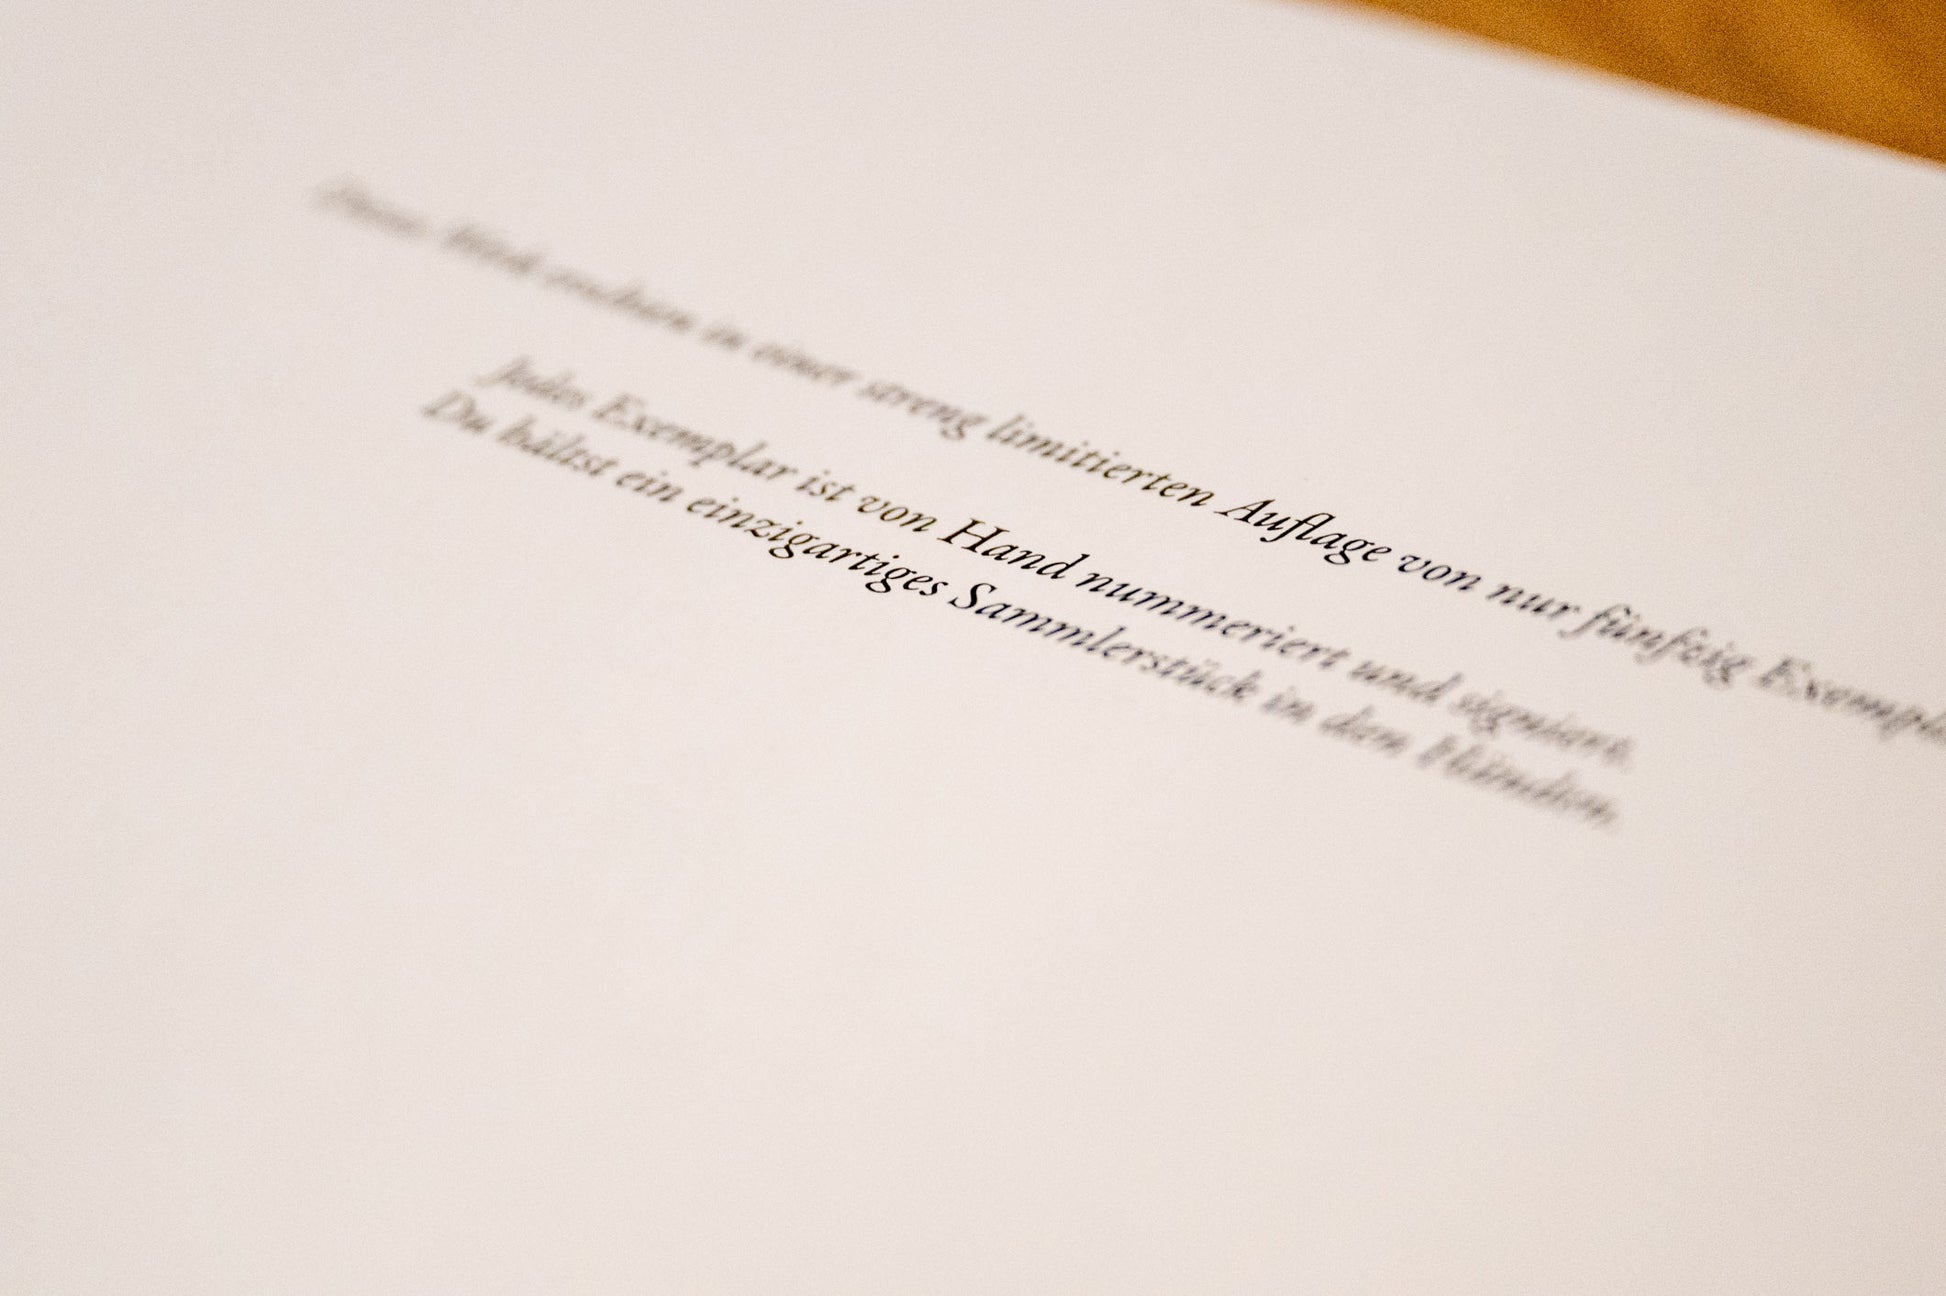 Dieses Werk erscheint in einer streng limitierten Auflage von nur fünfzig Exempla
Jedes Exemplar ist von Hand nummeriert und signiert.
Du hältst ein einzigartiges Sammlerstück in den Händen.